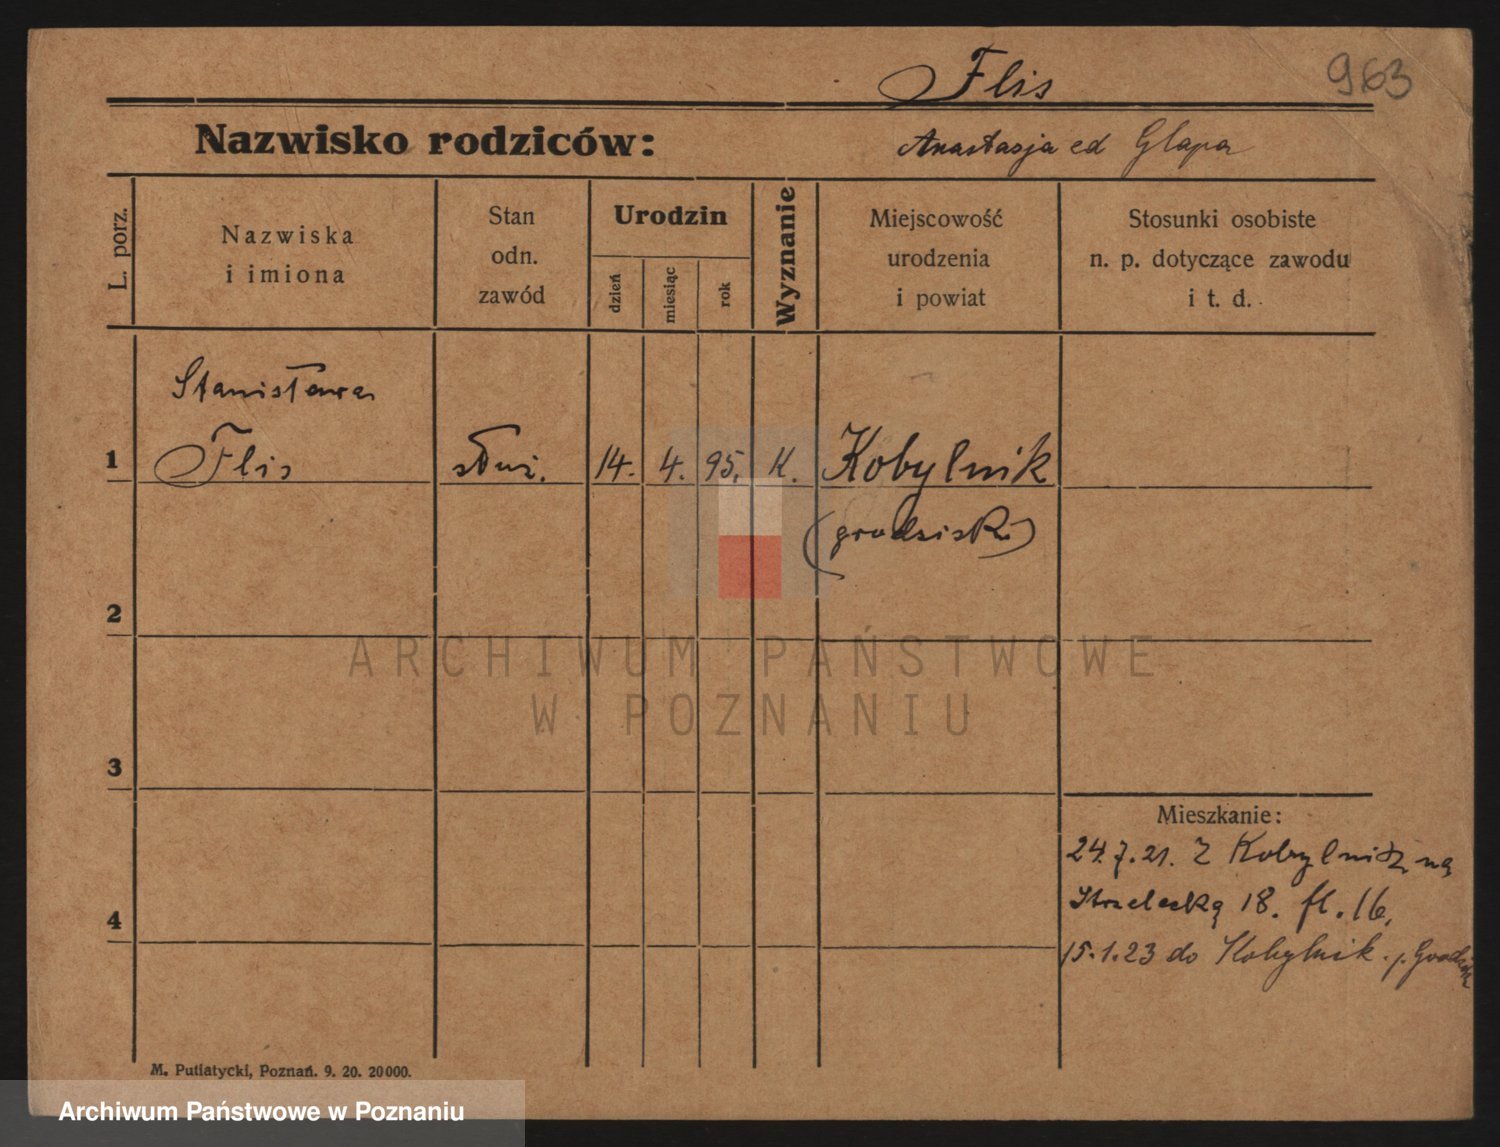 Flis
963
Nazwisko rodziców:
Anastasja ed Glapa
L. porz.
Nazwiska
i imiona
Stan
odn.
zawód
Urodzin
dzień
miesiąc
rok
Wyznanie
Miejscowość
urodzenia
i powiat
Stosunki osobiste
n. p. dotyczące zawodu
i t. d.
Stanisława
1 Flis służ. 14. 4. 95. K. Kobylnik
(grodzisk)
2
ARCHIWUM PAŃSTWOWE
W POZNANIU
3
Mieszkanie:
24.7.21. z Kobylnik na
Strzelecką 18.
4
15.1.23 do Kobylnik. p.
M. Putiatycki, Poznań. 9. 20. 20000.
Archiwum Państwowe w Poznaniu